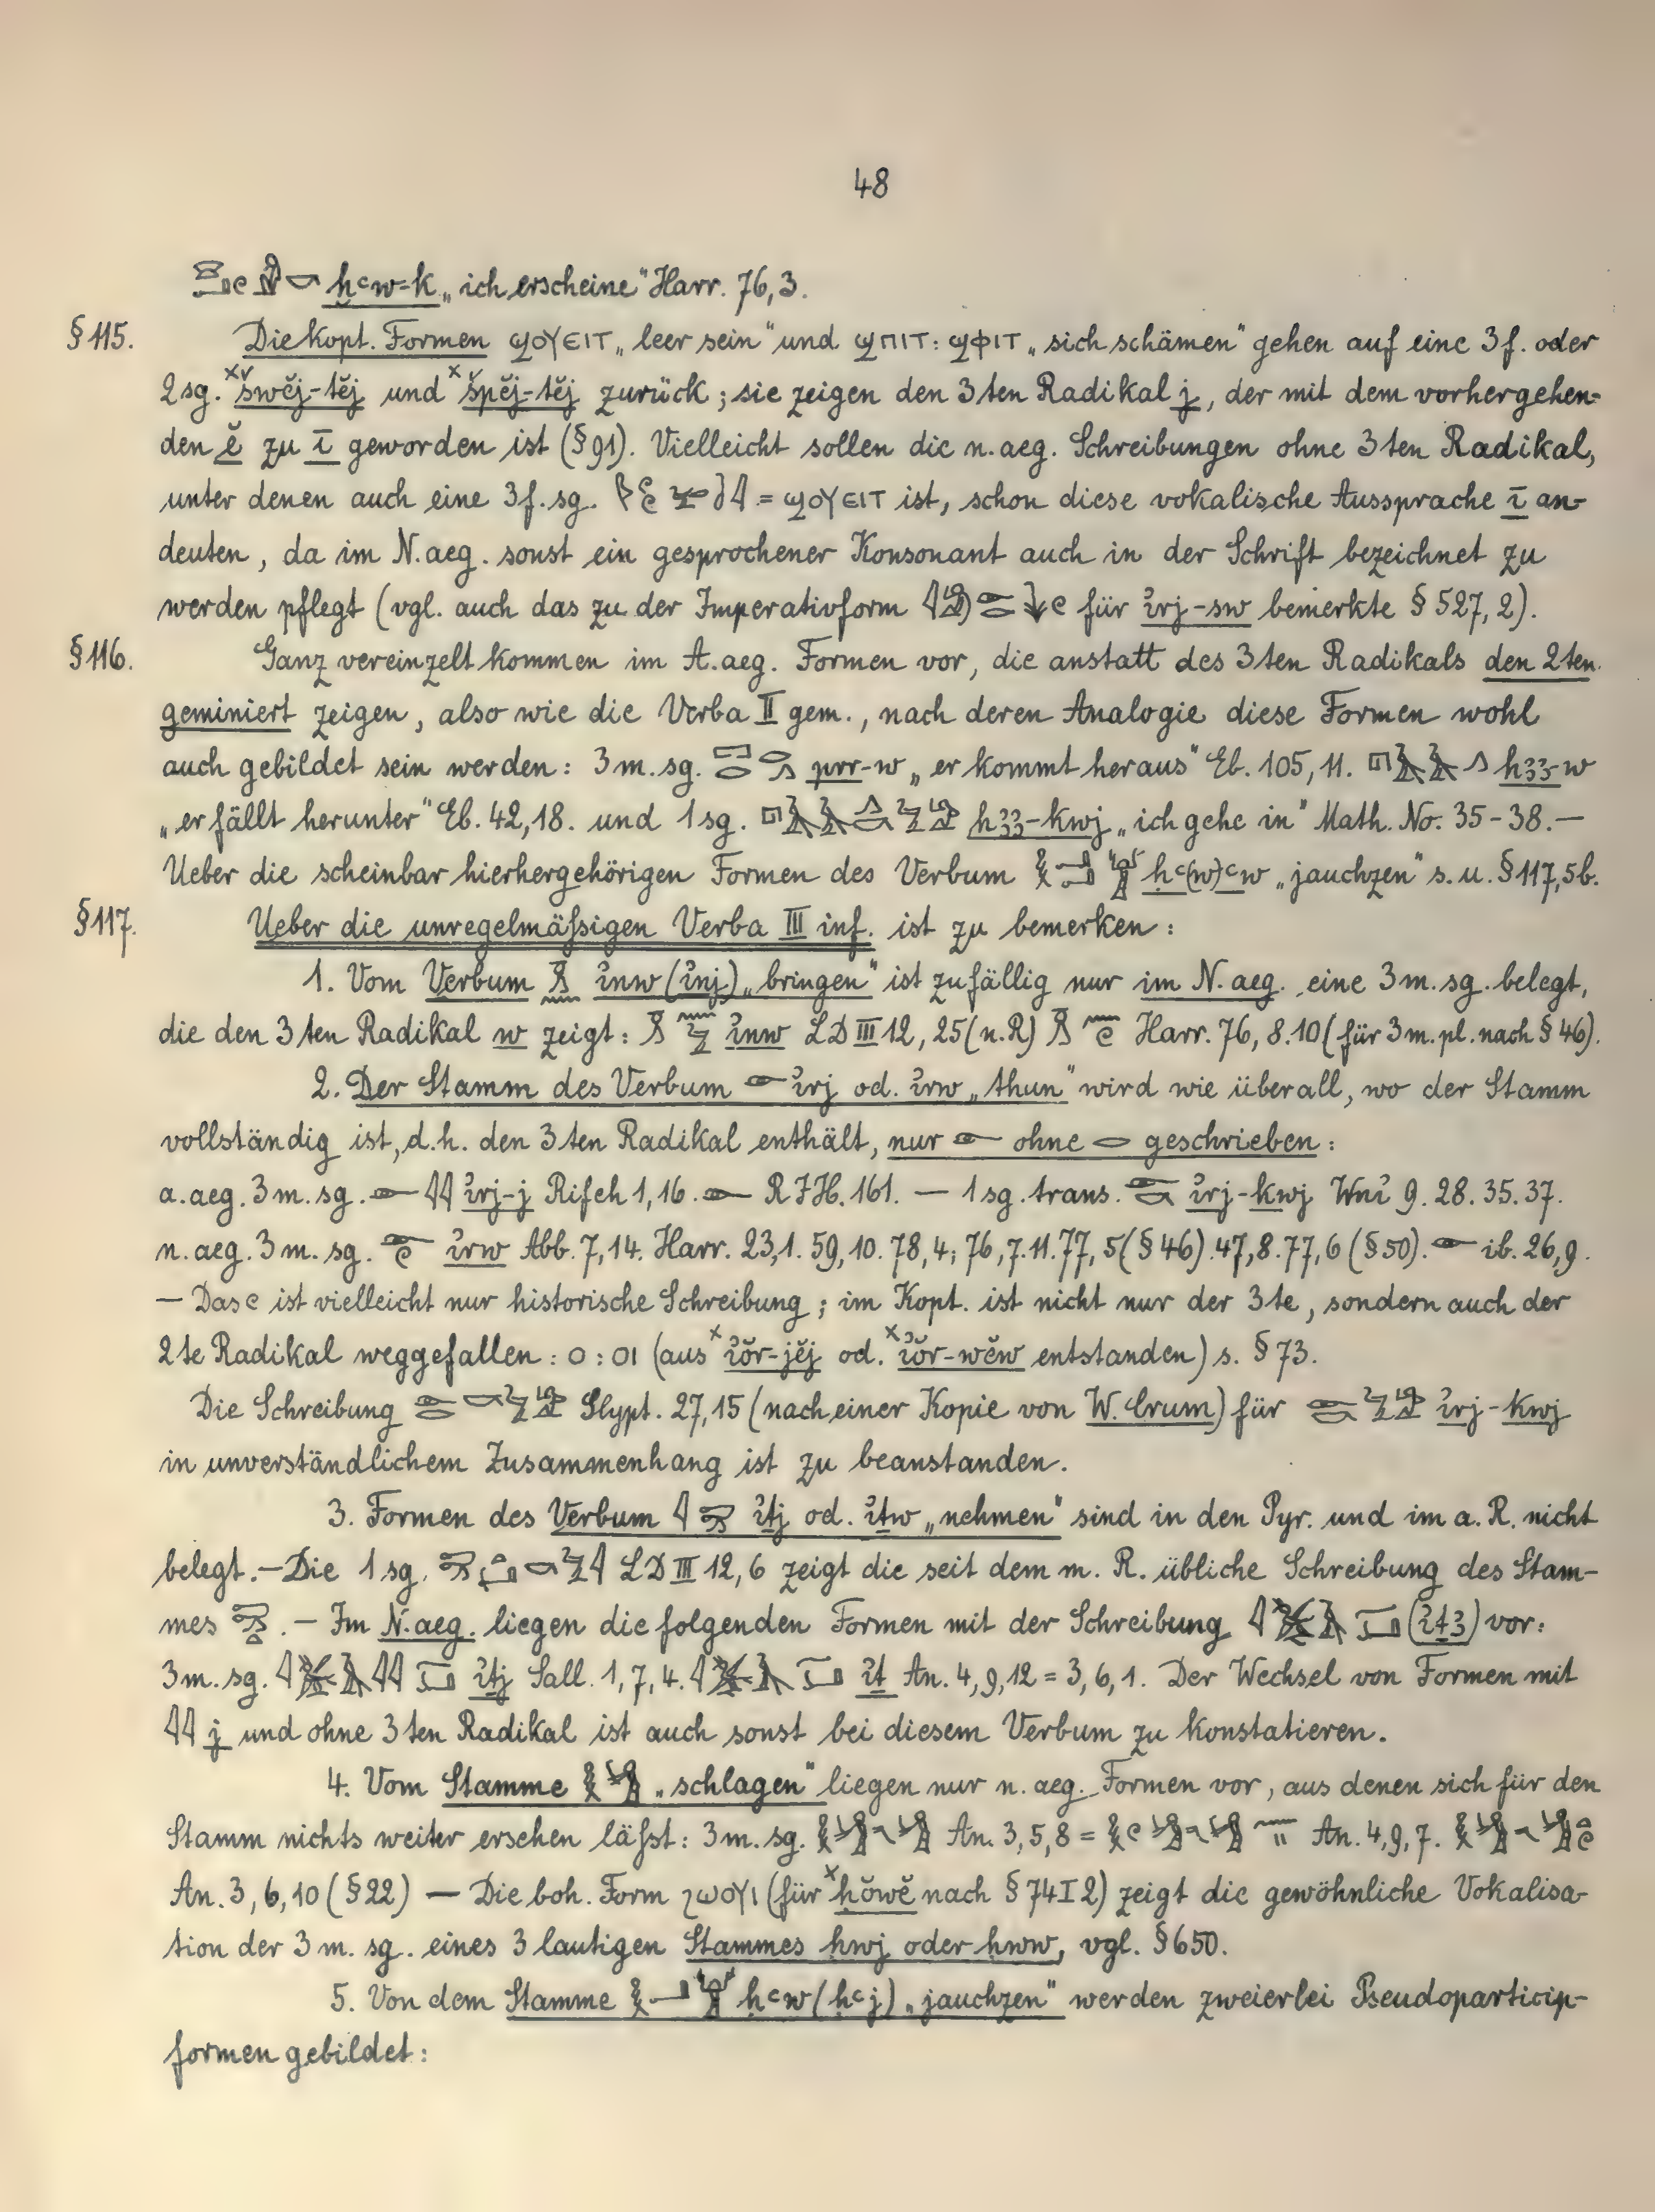 48
ḫꜥw-k „ich erscheine" Harr. 76,3.
§ 115. Die kopt. Formen ϣⲟⲩⲉⲓⲧ „leer sein" und ϣⲡⲓⲧ: ϣⲫⲓⲧ „sich schämen" gehen auf eine 3 f. oder
2 sg. ˣšwĕj-tĕj und ˣšpĕj-tĕj zurück; sie zeigen den 3ten Radikal j, der mit dem vorhergehen-
den ĕ zu ī geworden ist (§ 91). Vielleicht sollen die n. aeg. Schreibungen ohne 3ten Radikal,
unter denen auch eine 3 f. sg. = ϣⲟⲩⲉⲓⲧ ist, schon diese vokalische Aussprache ī an-
deuten, da im N. aeg. sonst ein gesprochener Konsonant auch in der Schrift bezeichnet zu
werden pflegt (vgl. auch das zu der Imperativform für ꞽrj-sw bemerkte § 527, 2).
§ 116. Ganz vereinzelt kommen im A. aeg. Formen vor, die anstatt des 3ten Radikals den 2ten
geminiert zeigen, also wie die Verba II gem., nach deren Analogie diese Formen wohl
auch gebildet sein werden: 3 m. sg. prr-w „er kommt heraus" Eb. 105, 11. hꜣꜣ-w
„er fällt herunter" Eb. 42, 18. und 1 sg. hꜣꜣ-kwj „ich gehe in" Math. No. 35-38. —
Ueber die scheinbar hierhergehörigen Formen des Verbum ḥꜥ(w)ꜥw „jauchzen" s. u. § 117, 5b.
§ 117. Ueber die unregelmäßigen Verba III inf. ist zu bemerken:
1. Vom Verbum ꞽnw (ꞽnj) „bringen" ist zufällig nur im N. aeg. eine 3 m. sg. belegt,
die den 3ten Radikal w zeigt: ꞽnw LD III 12, 25 (n. R) Harr. 76, 8. 10 (für 3 m. pl. nach § 46).
2. Der Stamm des Verbum ꞽrj od. ꞽrw „thun" wird wie überall, wo der Stamm
vollständig ist, d. h. den 3ten Radikal enthält, nur 𓁹 ohne 𓂋 geschrieben:
a. aeg. 3 m. sg. 𓁹𓇋𓇋 ꞽrj-j Rifeh 1, 16. 𓁹 RIH. 161. — 1 sg. trans. 𓁹𓎡 ꞽrj-kwj Wnꞽ 9. 28. 35. 37.
n. aeg. 3 m. sg. 𓁹𓏲 ꞽrw Abb. 7, 14. Harr. 23, 1. 59, 10. 78, 4; 76, 7. 11. 77, 5 (§ 46). 47, 8. 77, 6 (§ 50). 𓁹 ib. 26, 9.
— Das 𓏲 ist vielleicht nur historische Schreibung; im Kopt. ist nicht nur der 3te, sondern auch der
2te Radikal weggefallen: ⲟ : ⲟⲓ (aus ˣꞽŏr-jĕj od. ˣꞽŏr-wĕw entstanden) s. § 73.
Die Schreibung Slypt. 27, 15 (nach einer Kopie von W. Crum) für ꞽrj-kwj
in unverständlichem Zusammenhang ist zu beanstanden.
3. Formen des Verbum ꞽṯj od. ꞽṯw „nehmen" sind in den Pyr. und im a. R. nicht
belegt. — Die 1 sg. LD III 12, 6 zeigt die seit dem m. R. übliche Schreibung des Stam-
mes . — Im N. aeg. liegen die folgenden Formen mit der Schreibung (ꞽṯꜣ) vor:
3 m. sg. ꞽṯj Sall. 1, 7, 4. ꞽṯ An. 4, 9, 12 = 3, 6, 1. Der Wechsel von Formen mit
𓇋𓇋 j und ohne 3ten Radikal ist auch sonst bei diesem Verbum zu konstatieren.
4. Vom Stamme „schlagen" liegen nur n. aeg. Formen vor, aus denen sich für den
Stamm nichts weiter ersehen läßt: 3 m. sg. An. 3, 5, 8 = An. 4, 9, 7.
An. 3, 6, 10 (§ 22) — Die boh. Form ϩⲱⲟⲩⲓ (für ˣḥŏwĕ nach § 74 I 2) zeigt die gewöhnliche Vokalisa-
tion der 3 m. sg. eines 3 lautigen Stammes ḥwj oder ḥww, vgl. § 650.
5. Von dem Stamme ḥꜥw (ḥꜥj) „jauchzen" werden zweierlei Pseudoparticip-
formen gebildet: